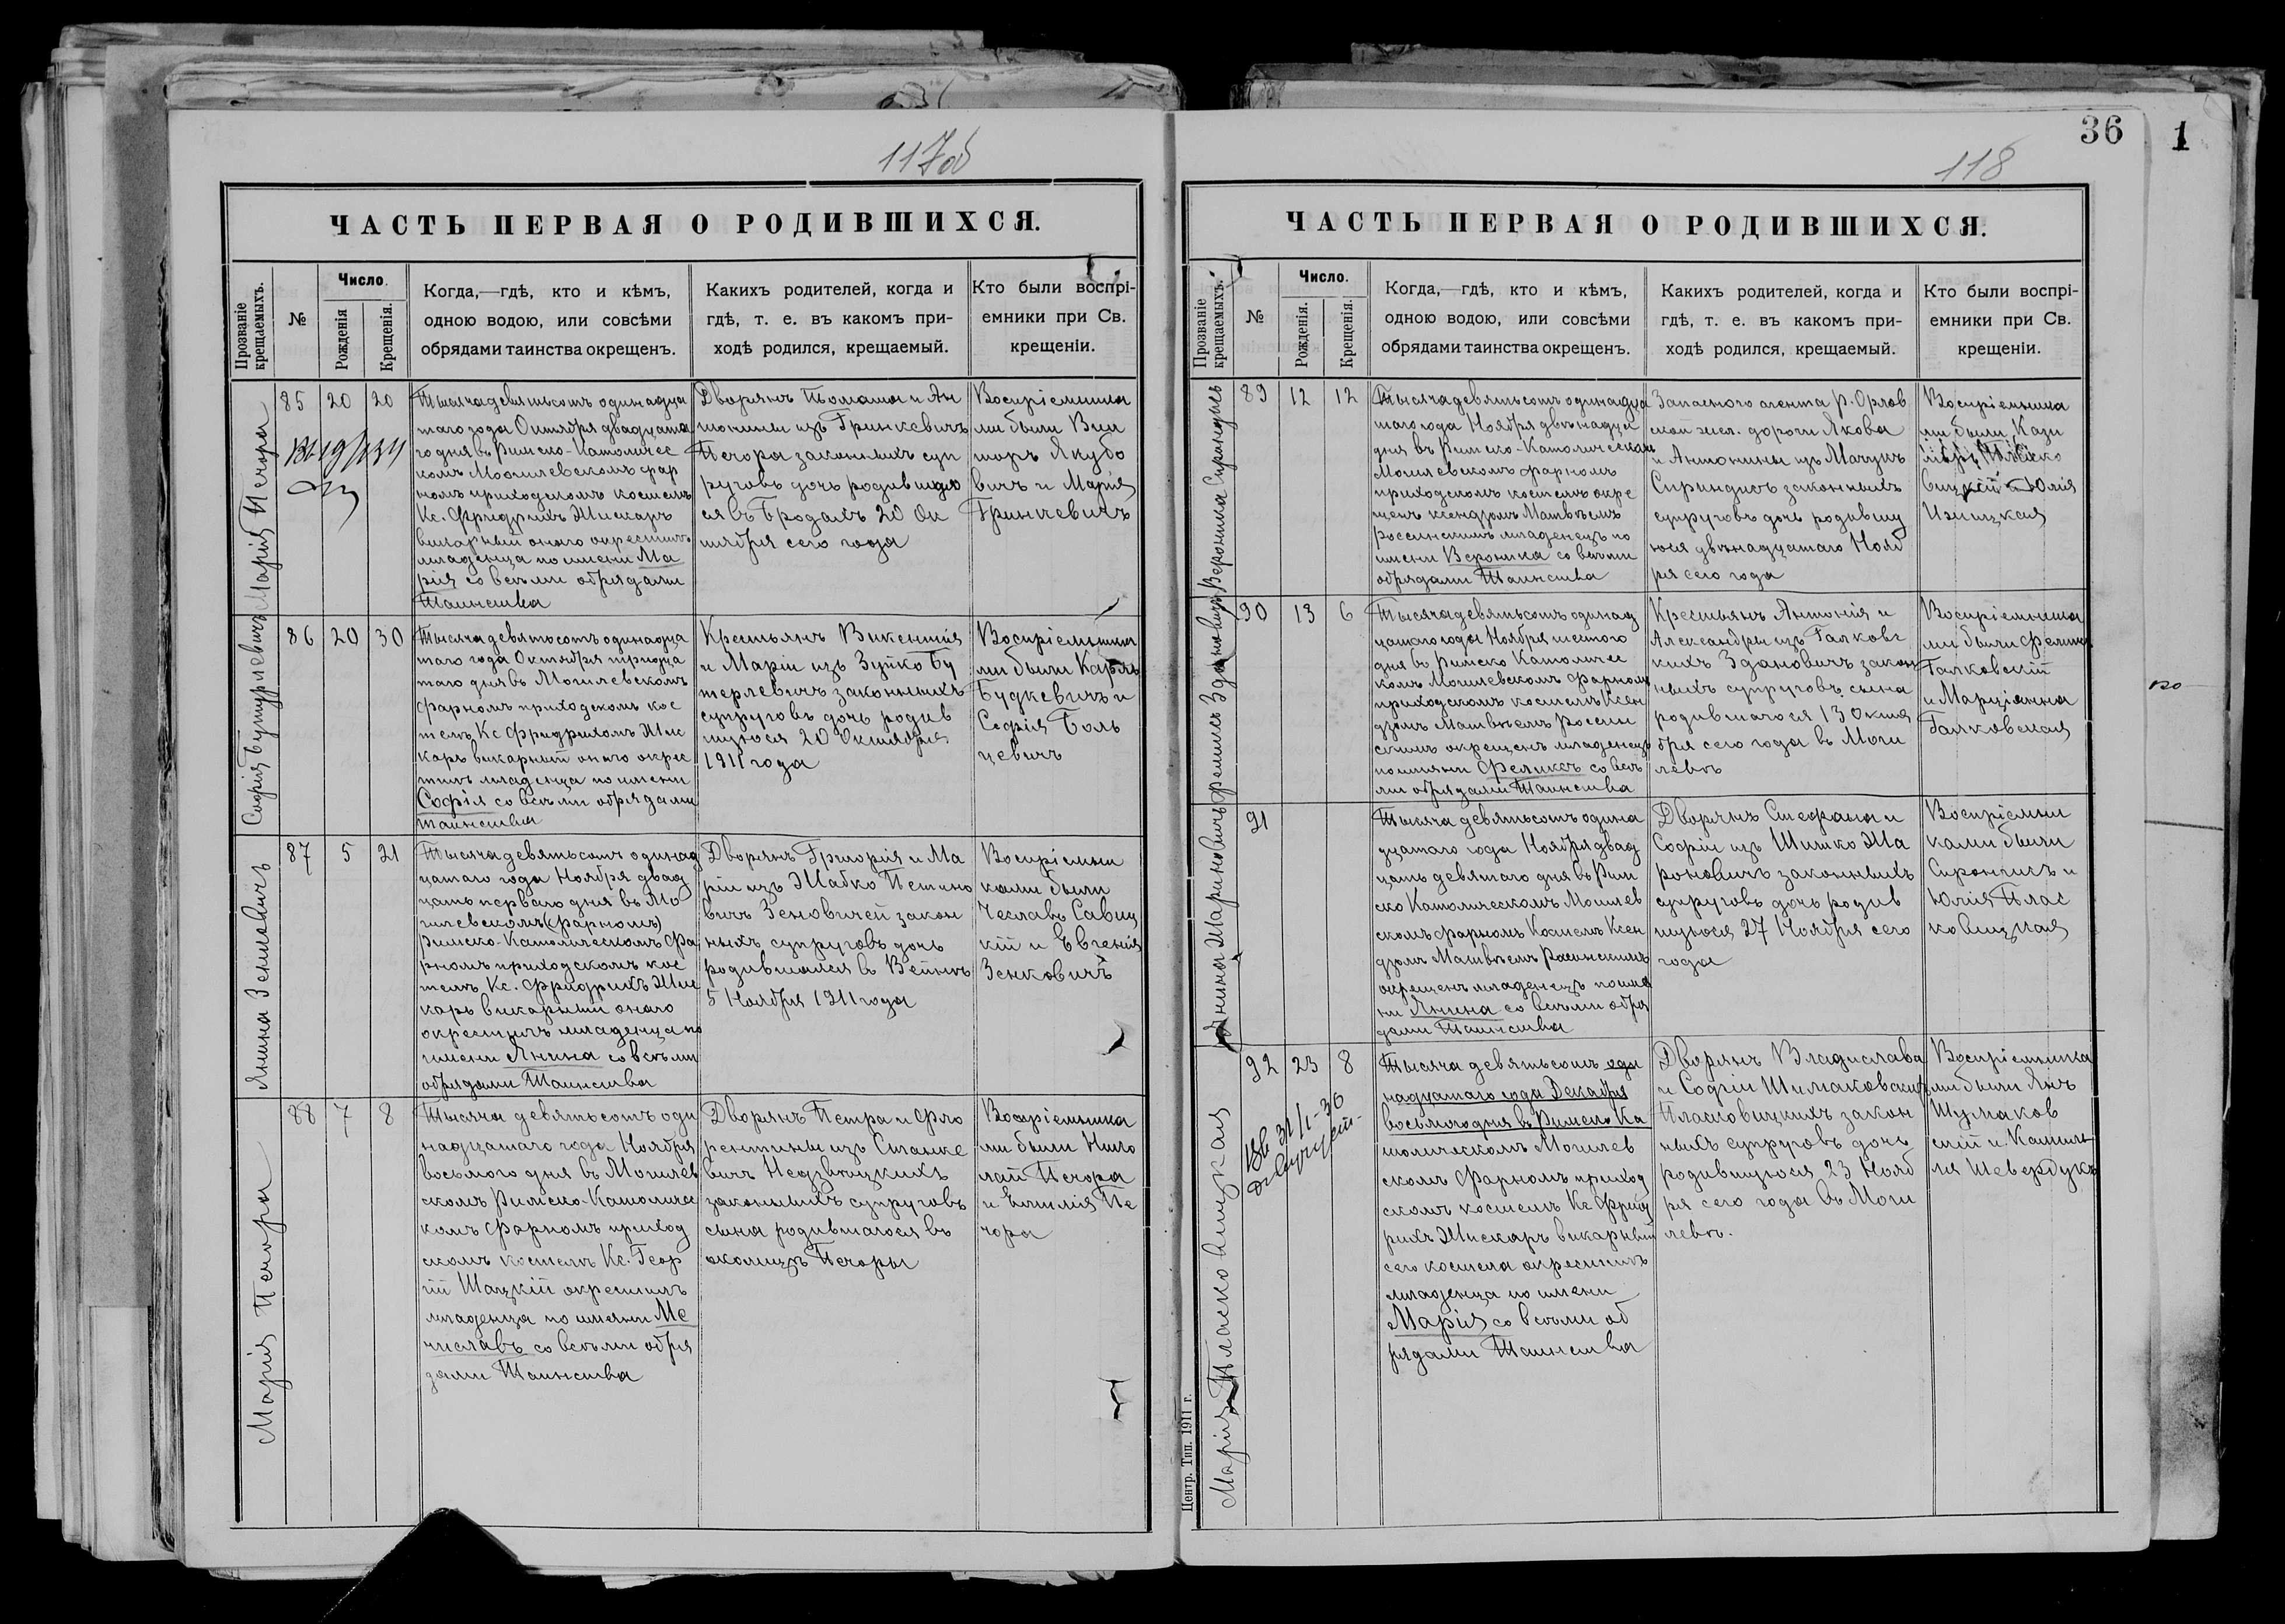 117об
ЧАСТЬ ПЕРВАЯ О РОДИВШИХСЯ.
Прозваніе крещаемыхъ.
№
Число.
Рожденія
Крещенія.
Когда,—гдѣ, кто и кѣмъ,
одною водою, или совсѣми
обрядами таинства окрещенъ.
Какихъ родителей, когда и
гдѣ, т. е. въ какомъ при-
ходѣ родился, крещаемый.
Кто были воспрі-
емники при Св.
крещеніи.
Марія Печора
85
20
20
Тысяча девятьсотъ одинадца
таго года Октября двадцата
го дня въ Римско-Католичес
комъ Могилевскомъ фар
номъ приходскомъ костелѣ
Кс. Фридрихъ Жискаръ
викарный онаго окрестилъ
младенца по имени Ма
рія со всѣми обрядами
Таинства
Дворянъ Томаша и Ан
тонины изъ Гринкевичъ
Печора законныхъ суп
руговъ дочь родившую
ся въ Бродахъ 20 Ок
тября сего года
Воспріемника
ми были Вик
торъ Якубо
вичъ и Марія
Гринкевичъ
Софія Бутурлевичъ
86
20
30
Тысяча девятьсотъ одинадца
таго года Октября тридца
таго дня въ Могилевскомъ
фарномъ приходскомъ кос
телѣ Кс Фридрихомъ Жис
каръ викарный онаго окрес
тилъ младенца по имени
Софія со всѣми обрядами
таинства
Крестьянъ Викентія
и Маріи изъ Зуйко Бу
терлевичъ законныхъ
супруговъ дочь родив
шуюся 20 Октября
1911 года
Воспріемника
ми были Карлъ
Будкевичъ и
Софія Боль
цевичъ
Янина Зеновичъ
87
5
21
Тысяча девятьсотъ одинад
цатаго года Ноября двад
цать перваго дня въ Мо
гилевскомъ (фарномъ)
Римско-Католическомъ фа
рномъ приходскомъ кос
телѣ Кс. Фридрихъ Жис
каръ викарный онаго
окрестилъ младенца по
имени Янина со всѣми
обрядами Таинства
Дворянъ Григорія и Ма
ріи изъ Жабко
Зеновичей закон
ныхъ супруговъ дочь
родившаяся въ Вейнѣ
5 Ноября 1911 года
Воспріемни
ками были
Чеславъ Савиц
кій и Евгенія
Зенковичъ
Марія Печора
88
7
8
Тысяча девятьсотъ оди
надцатаго года Ноября
восьмого дня въ Могилев
скомъ Римско-Католичес
комъ фарномъ приход
скомъ костелѣ Кс. Геор
гій Шацкій окрестилъ
младенца по имени Ме
числавъ со всѣми обря
дами Таинства
Дворянъ Петра и Фло
рентины изъ Станке
вичъ Недзвѣцкихъ
законныхъ супруговъ
сына родившагося въ
околицѣ Печоры
Воспріемника
ми были Нико
лай Печора
и Емилія Пе
чора
36
1
118
ЧАСТЬ ПЕРВАЯ О РОДИВШИХСЯ.
Прозваніе крещаемыхъ.
№
Число.
Рожденія.
Крещенія.
Когда,—гдѣ, кто и кѣмъ,
одною водою, или совсѣми
обрядами таинства окрещенъ.
Какихъ родителей, когда и
гдѣ, т. е. въ какомъ при-
ходѣ родился, крещаемый.
Кто были воспрі-
емники при Св.
крещеніи.
Вероника
89
12
12
Тысяча девятьсотъ одинадца
таго года Ноября двѣнадца
дня въ Римско-Католическомъ
Могилевскомъ фарномъ
приходскомъ костелѣ окре
щенъ ксендзомъ Матвѣемъ
Россинскимъ младенецъ по
имени Вероника со всѣми
обрядами Таинства
Запаснаго агента р. Орлов
ской жел. дороги Якова
и Антонины изъ
законныхъ
супруговъ дочь родившу
юся двѣнадцатаго Нояб
ря сего года
Воспріемника
ми были Кази
міръ Пляско
вицкій и Юлія
Феликсъ Здановичъ
90
13
6
Тысяча девятьсотъ одинад
цатаго года Ноября шестого
дня въ Римско Католичес
комъ Могилевскомъ фарномъ
приходскомъ костелѣ Ксен
дзомъ Матвѣемъ Россин
скимъ окрещенъ младенецъ
по имяни Феликсъ со всѣ
ми обрядами Таинства
Крестьянъ Антонія и
Александры изъ Галковс
кихъ Здановичъ закон
ныхъ супруговъ сына
родившагося 13 Октя
бря сего года въ Моги
левѣ
Воспріемника
ми были Феликсъ
Галковскій
и Марціянна
Галковская
Янина Жариновичъ
91
Тысяча девятьсотъ одина
дцатаго года Ноября двад
цать девятаго дня въ Рим
ско Католическомъ Могилев
скомъ фарномъ Костелѣ Ксен
дзомъ Матвѣемъ Россинскимъ
окрещенъ младенецъ по имя
ни Янина со всѣми обря
дами Таинства
Дворянъ Стефана и
Софіи изъ Шишко Жа
роновичъ законныхъ
супруговъ дочь родив
шуюся 27 Ноября сего
года
Воспріемни
ками были
и
Юлія Пляс
ковицкая
Марія Плясковицкая
92
23
8
Тысяча девятьсотъ оди
надцатаго года Декабря
восьмого дня въ Римско Ка
толическомъ Могилев
скомъ Фарномъ приход
скомъ костелѣ Кс Фрид
рихъ Жискаръ викарный
сего костела окрестилъ
младенца по имени
Марія со всѣми об
рядами Таинства
Дворянъ Владислава
и Софіи Шимаковских
Плясковицкихъ закон
ныхъ супруговъ дочь
родившуюся 23 Нояб
ря сего года въ Моги
левѣ.
Воспріемника
ми были Янъ
Шумаков
скій и Камил
ля Шевердукъ
Центр. Тип. 1911 г.